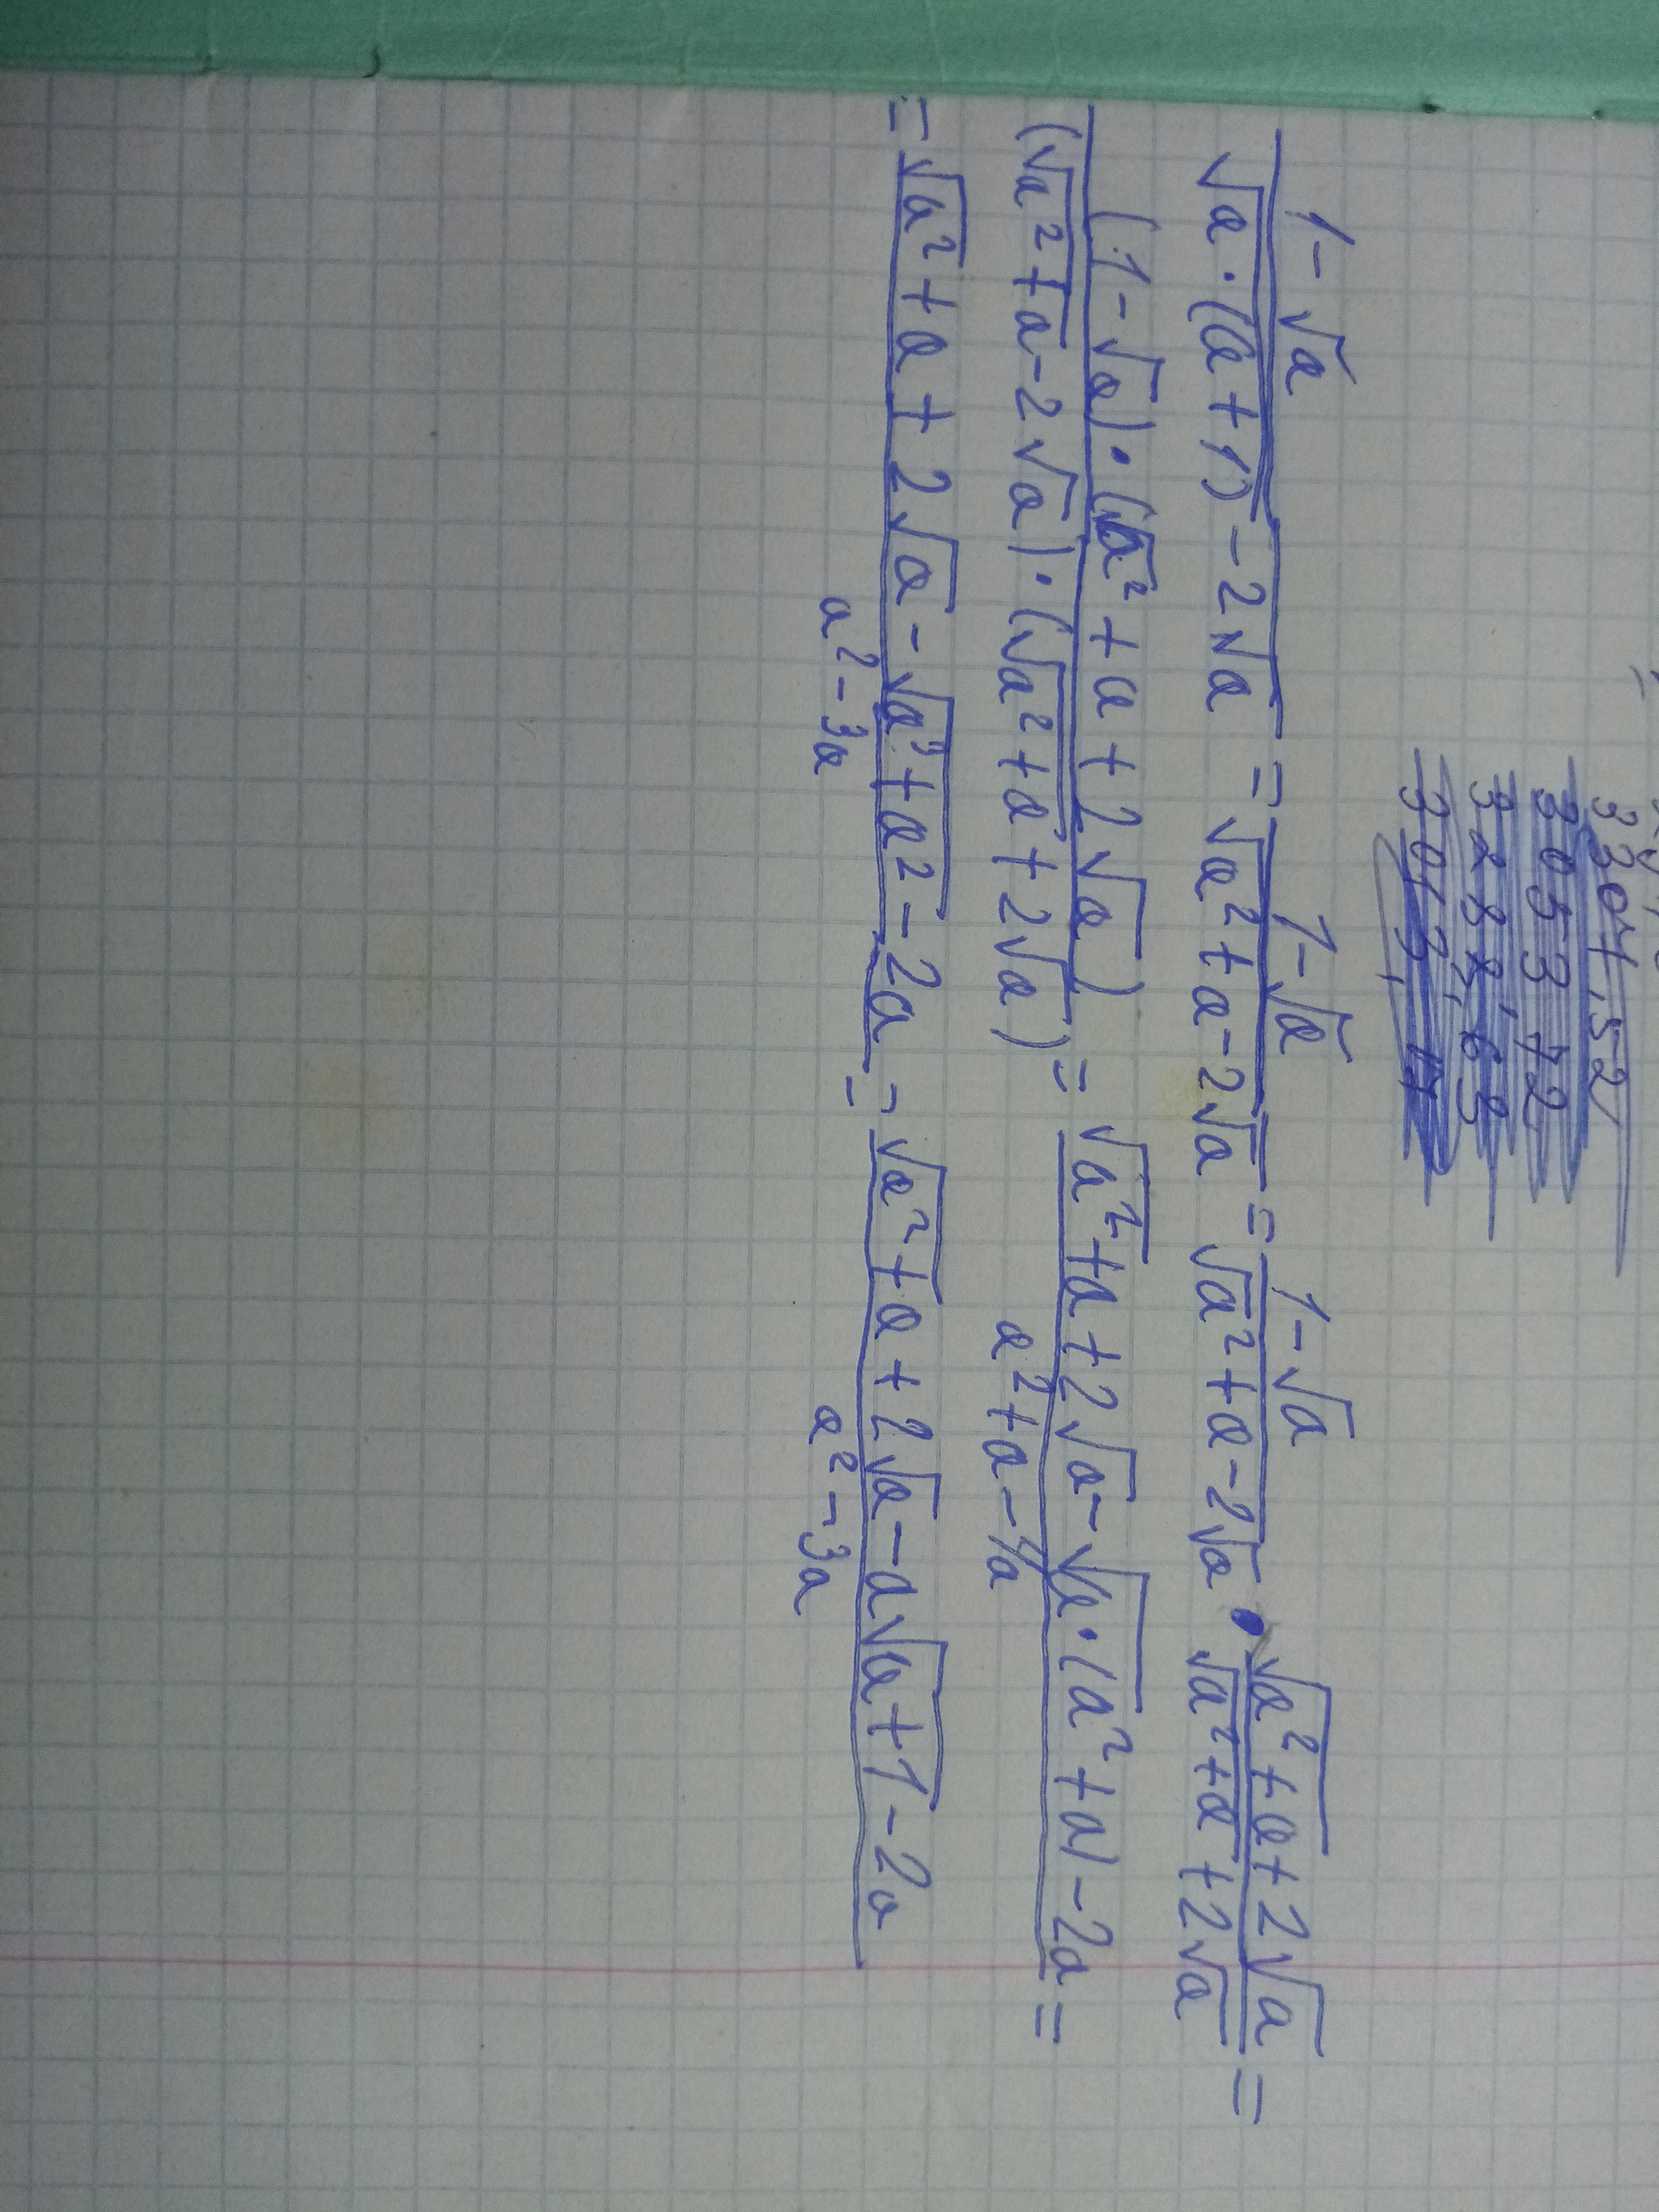 3304,52
3053 72
3288,65
1-√a / √a·(a+1) -2√a = 1-√a / √a²+a-2√a = 1-√a / √a²+a-2√a · √a²+a+2√a / √a²+a+2√a =
(1-√a)·(√a²+a+2√a) / (√a²+a-2√a)·(√a²+a+2√a) = √a²+a+2√a-√a·(a²+a)-2a / a²+a-4a =
= √a²+a+2√a-√a³+a²-2a / a²-3a = √a²+a+2√a-a√a+1-2a / a²-3a